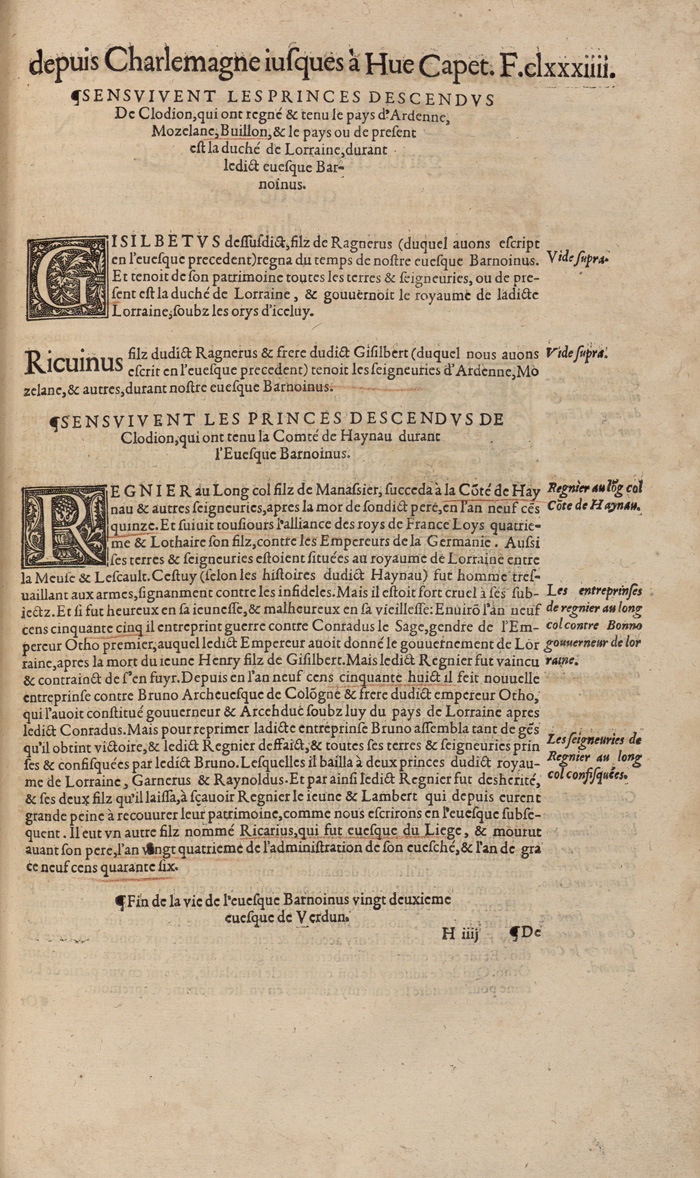 depuis Charlemagne iuſques à Hue Capet. F.clxxxiiii.
¶SENSVIVENT LES PRINCES DESCENDVS
De Clodion, qui ont regné & tenu le pays d'Ardenne,
Mozelane, Buillon, & le pays ou de preſent
eſt la duché de Lorraine, durant
ledict eueſque Bar-
noinus.
GISILBETVS deſſuſdict, filz de Ragnerus (duquel auons eſcript
en l'eueſque precedent) regna du temps de noſtre eueſque Barnoinus.
Vide ſupra.
Et tenoit de ſon patrimoine toutes les terres & ſeigneuries, ou de pre-
ſent eſt la duché de Lorraine, & gouuernoit le royaume de ladicte
Lorraine, ſoubz les orys d'iceluy.
Ricuinus filz dudict Ragnerus & frere dudict Giſilbert (duquel nous auons
Vide ſupra.
eſcrit en l'eueſque precedent) tenoit les ſeigneuries d'Ardenne, Mo
zelane, & autres, durant noſtre eueſque Barnoinus.
¶SENSVIVENT LES PRINCES DESCENDVS DE
Clodion, qui ont tenu la Comté de Haynau durant
l'Eueſque Barnoinus.
REGNIER au Long col filz de Manaſſier, ſucceda à la Cõté de Hay
Regnier au lõg col
nau & autres ſeigneuries, apres la mor de ſondict pere, en l'an neuf cẽs
Cõte de Haynau.
quinze. Et ſuiuit touſiours l'alliance des roys de France Loys quatrie-
me & Lothaire ſon filz, contre les Empereurs de la Germanie. Auſſi
ſes terres & ſeigneuries eſtoient ſituées au royaume de Lorraine entre
la Meuſe & Leſcault. Ceſtuy (ſelon les hiſtoires dudict Haynau) fut homme treſ-
uaillant aux armes, ſignanment contre les infideles. Mais il eſtoit fort cruel à ſes ſub-
Les entreprinſes
iectz. Et ſi fut heureux en ſa ieuneſſe, & malheureux en ſa vieilleſſe: Enuirõ l'an neuf
de regnier au long
cens cinquante cinq il entreprint guerre contre Conradus le Sage, gendre de l'Em-
col contre Bonno
pereur Otho premier, auquel ledict Empereur auoit donné le gouuernement de Lor
gouuerneur de lor
raine, apres la mort du ieune Henry filz de Giſilbert. Mais ledict Regnier fut vaincu
raine.
& contrainct de ſ'en fuyr. Depuis en l'an neuf cens cinquante huict il feit nouuelle
entreprinſe contre Bruno Archeueſque de Colõgne & frere dudict empereur Otho,
qui l'auoit conſtitué gouuerneur & Arcehduc ſoubz luy du pays de Lorraine apres
ledict Conradus. Mais pour reprimer ladicte entreprinſe Bruno aſſembla tant de gẽs
qu'il obtint victoire, & ledict Regnier deffaict, & toutes ſes terres & ſeigneuries prin
Les ſeigneuries de
ſes & confiſquées par ledict Bruno. Leſquelles il bailla à deux princes dudict royau-
Regnier au long
me de Lorraine, Garnerus & Raynoldus. Et par ainſi ledict Regnier fut desherité,
col confiſquées.
& ſes deux filz qu'il laiſſa, à ſçauoir Regnier le ieune & Lambert qui depuis eurent
grande peine à recouurer leur patrimoine, comme nous eſcrirons en l'eueſque ſubſe-
quent. Il eut vn autre filz nommé Ricarius, qui fut eueſque du Liege, & mourut
auant ſon pere, l'an vingt quatrieme de l'adminiſtration de ſon eueſché, & l'an de gra
ce neuf cens quarante ſix.
¶Fin de la vie de l'eueſque Barnoinus vingt deuxieme
eueſque de Verdun.
H iiij ¶De